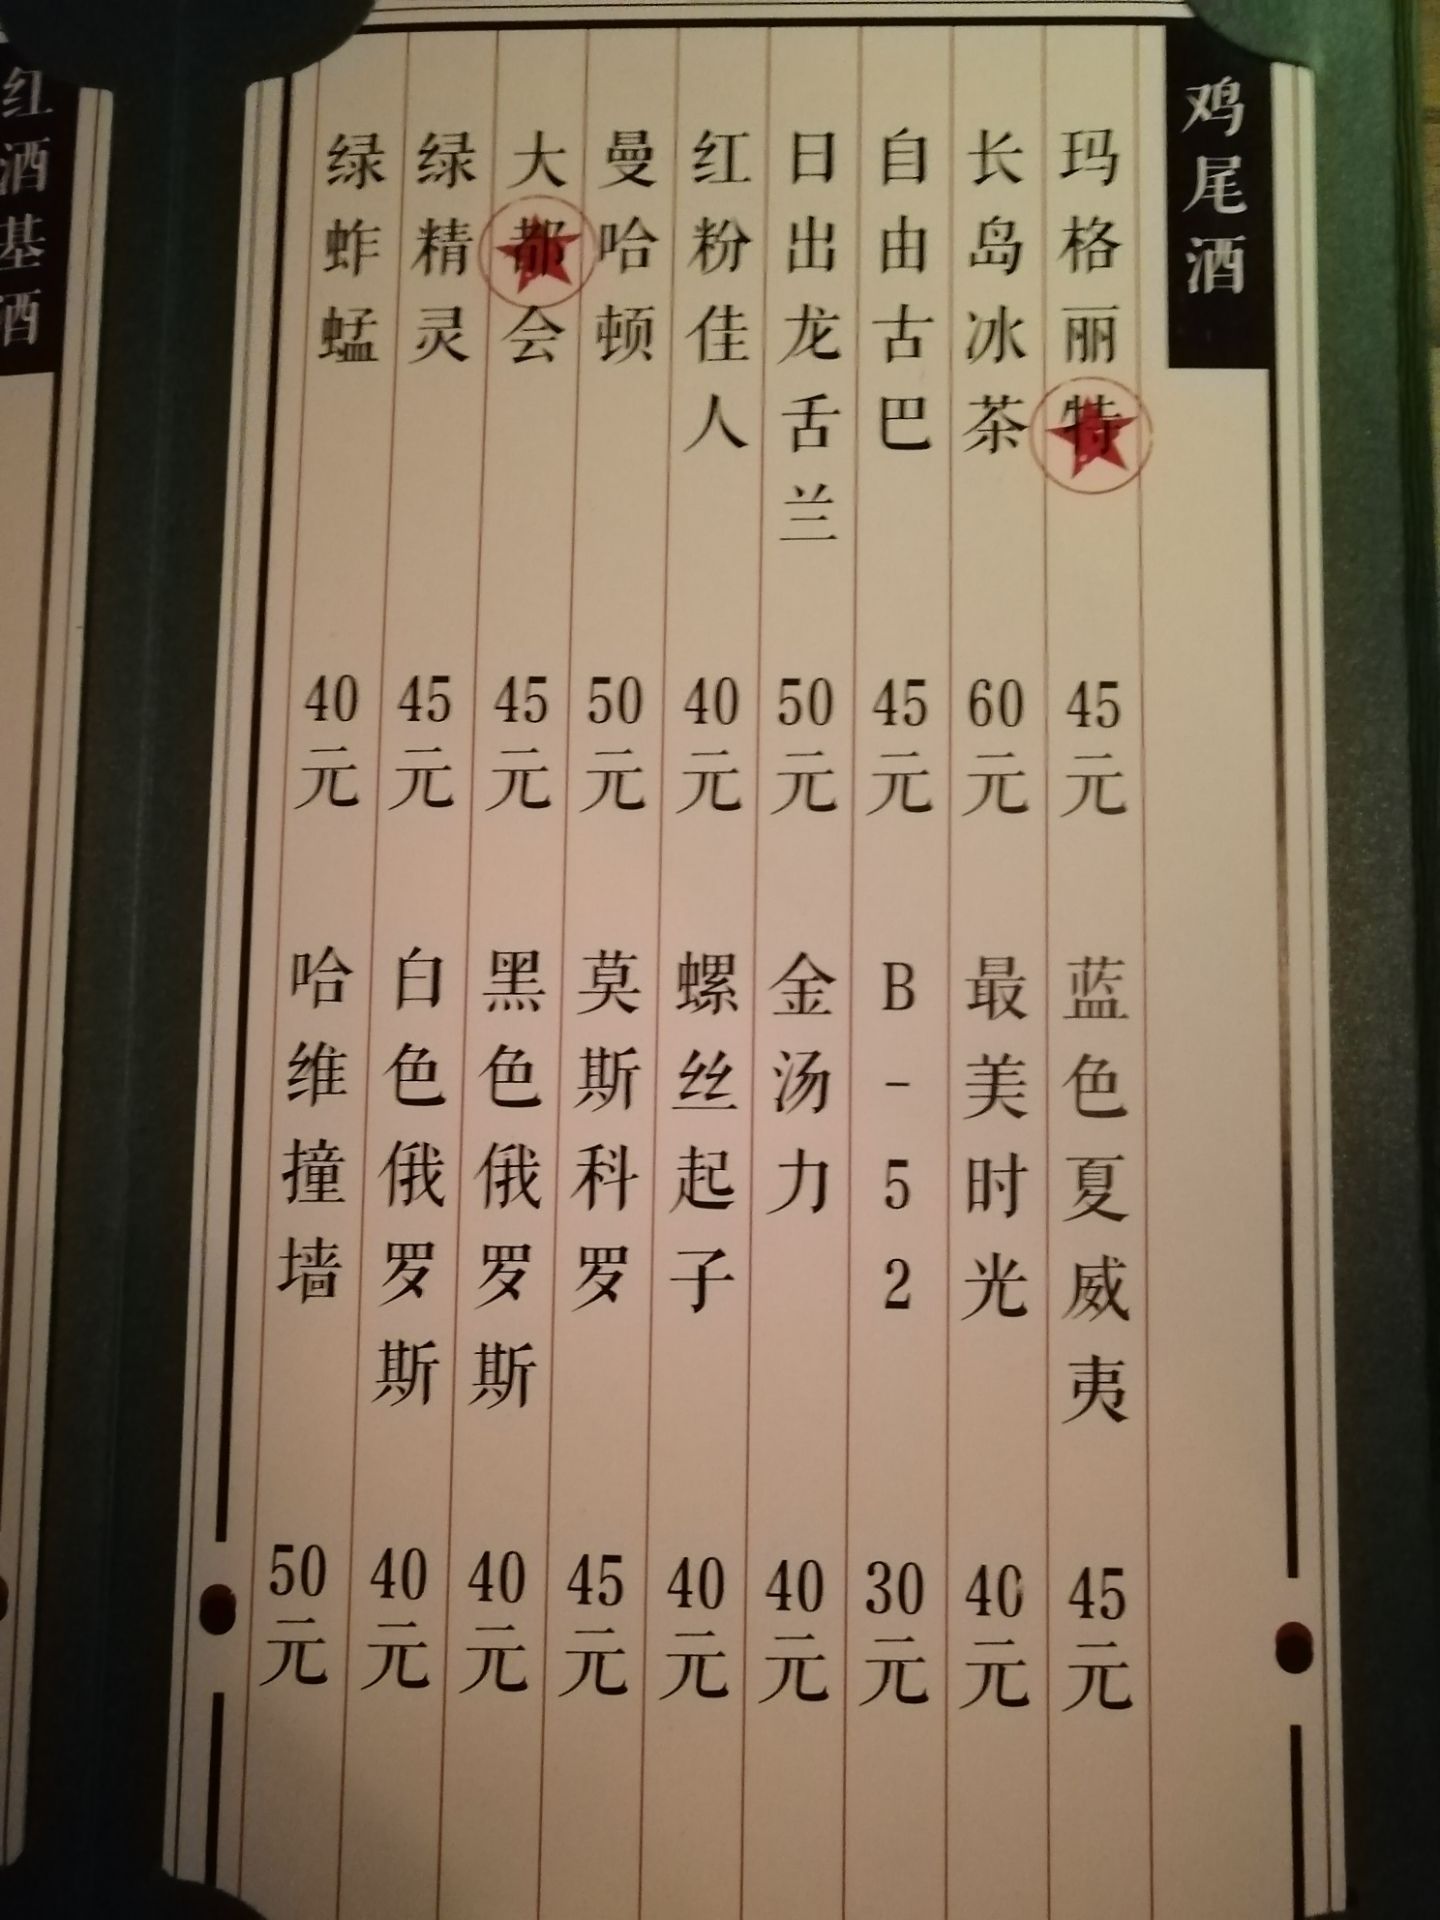 鸡尾酒
玛格丽特 45元 蓝色夏威夷 45元
长岛冰茶 60元 最美时光 40元
自由古巴 45元 B-52 30元
日出龙舌兰 50元 金汤力 40元
红粉佳人 40元 螺丝起子 40元
曼哈顿 50元 莫斯科罗 45元
大都会 45元 黑色俄罗斯 40元
绿精灵 45元 白色俄罗斯 40元
绿蚱蜢 40元 哈维撞墙 50元
红酒基酒